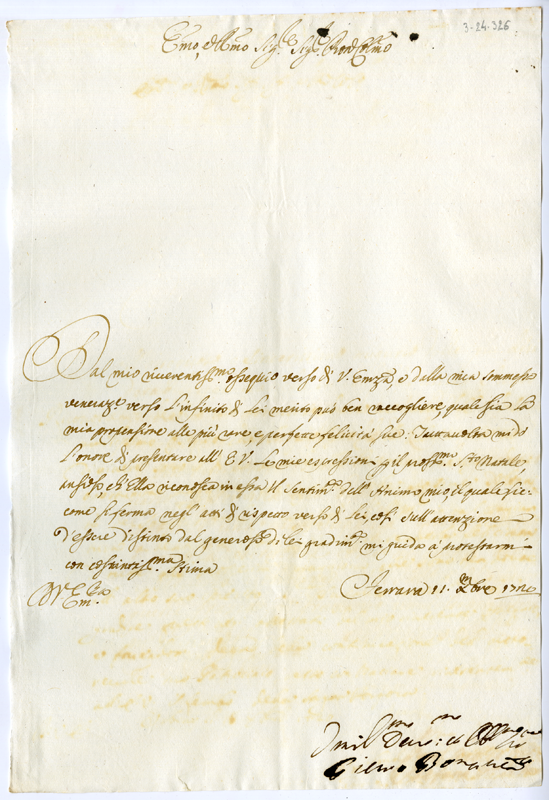 3-24-326
Emo, e Rmo Sig.r Sig.r Pron Colmo
Dal mio riverentiss.mo ossequio verso di V. Emza, e dalla mia sommessa
veneraz.e verso l'infinito di lei merito può ben raccogliere, quale sia la
mia propensione alle più vere, e perfette felicità sue. Tuttavolta
l'onore di presentare all' E V. le mie espressioni pel pross.mo S.to Natale,
ch' Ella riconosca in essa il sentim.to dell' Animo mio, il quale sic=
come si ferma negl' atti di rispetto verso di lei, così sull' attenzione
d'essere distinto dal generoso di lei gradim.to mi guida à protestarmi
con ossequiosiss.ma stima
Di V.ra Em.za
Ferrara 11. Xbre
Umil.mo Dev.mo et Obblig.mo